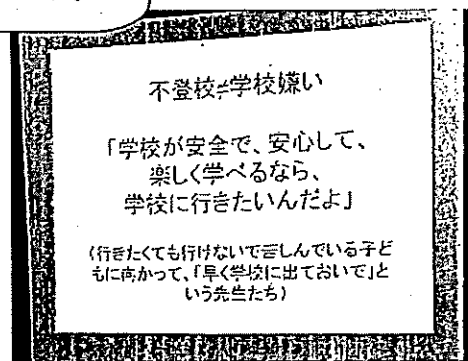 不登校≠学校嫌い
「学校が安全で、安心して、
楽しく学べるなら、
学校に行きたいんだよ」
(行きたくても行けないで苦しんでいる子ど
もに向かって、「早く学校に出ておいで」と
いう先生たち)